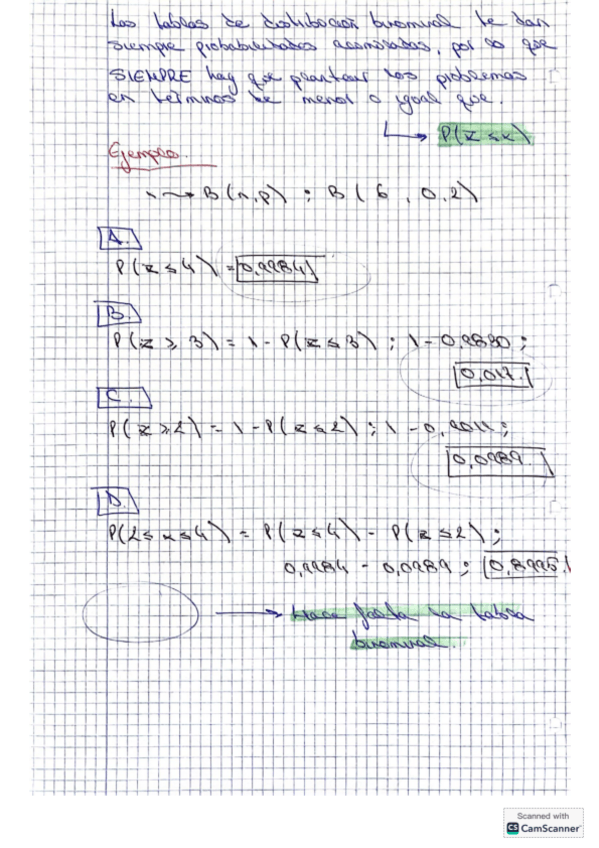 Las tablas de distribución binomial te dan
siempre probabilidades acumuladas, por lo que
SIEMPRE hay que plantear los problemas
en términos de menor o igual que.
P(z≤x)
Ejemplo.
n → B(n,p) ; B(6, 0.2)
A.
P(z≤4) = 0,9984.
B.
P(z≥3) = 1 - P(z≤3) ; 1 - 0,9830 ;
0,017.
C.
P(z≥2) = 1 - P(z≤2) ; 1 - 0,9011 ;
0,0989.
D.
P(2≤x≤4) = P(z≤4) - P(z≤2) ;
0,9984 - 0,0989 ; 0,8995.
→ Hace falta la tabla
binomial.
Scanned with
CS CamScanner